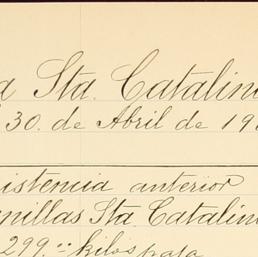 a Sta. Catalina
30. de Abril de 19
istencia anterior
nillas Sta. Catalin
299.:: kilos paja